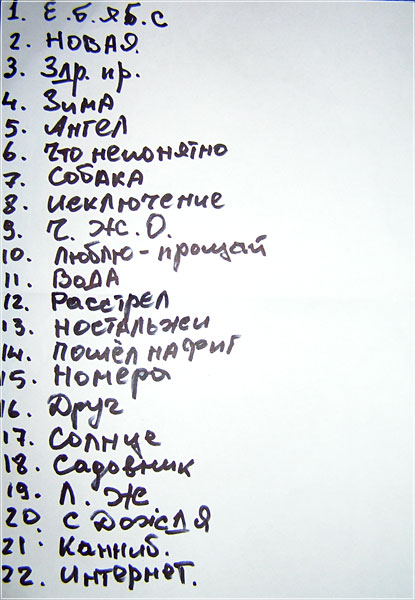 1. Е.Б.Я Б.С
2. НОВАЯ.
3. Здр. нр.
4. Зима
5. Ангел
6. Что непонятно
7. Собака
8. исключение
9. Ч. Ж. О.
10. Люблю - прощай
11. Вода
12. Расстрел
13. ностальжи
14. пошёл нафиг
15. Номера
16. Друг
17. Солнце
18. Садовник
19. Л. Ж
20. С Дождя
21. Канниб.
22. интернет.